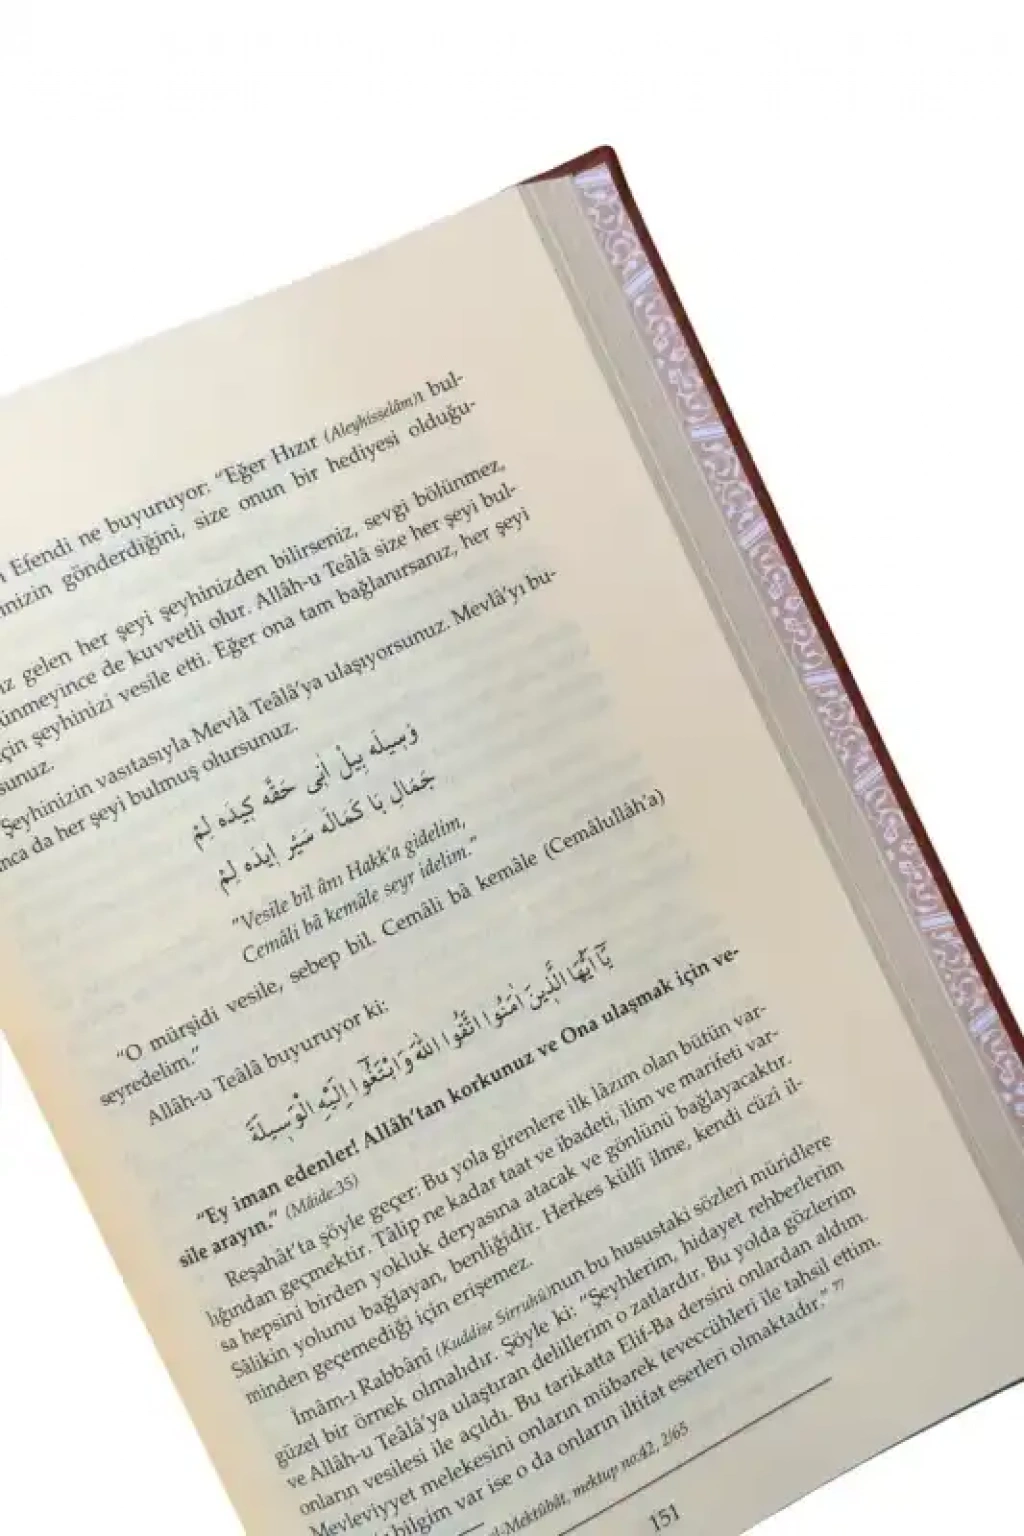 Efendi ne buyuruyor: "Eğer Hızır (Aleyhisselâm)ı bul-
gönderdiğini, size onun bir hediyesi olduğu-
gelen her şeyi şeyhinizden bilirseniz, sevgi bölünmez,
de kuvvetli olur. Allâh-u Teâlâ size her şeyi bul-
şeyhinizi vesile etti. Eğer ona tam bağlanırsanız, her şeyi
Şeyhinizin vasıtasıyla Mevlâ Teâlâ'ya ulaşıyorsunuz. Mevlâ'yı bu-
da her şeyi bulmuş olursunuz.
وَسِيلَه بِيلْ اَنِى حَقَّه كِيدَه لِمْ
جَمَالِ بَا كَمَالَه سَيْر اِيدَه لِمْ
"Vesile bil ânı Hakk'a gidelim,
Cemâli bâ kemâle seyr idelim."
"O mürşidi vesile, sebep bil. Cemâli bâ kemâle (Cemâlullâh'a)
seyredelim."
Allâh-u Teâlâ buyuruyor ki:
يَٓا اَيُّهَا الَّذِينَ اٰمَنُوا اتَّقُوا اللّٰهَ وَابْتَغُٓوا اِلَيْهِ الْوَسِيلَةَ
"Ey iman edenler! Allâh'tan korkunuz ve Ona ulaşmak için ve-
sile arayın." (Mâide:35)
Reşahât'ta şöyle geçer: Bu yola girenlere ilk lâzım olan bütün var-
lığından geçmektir. Tâlip ne kadar taat ve ibadeti, ilim ve marifeti var-
sa hepsini birden yokluk deryasına atacak ve gönlünü bağlayacaktır.
Sâlikin yolunu bağlayan, benliğidir. Herkes küllî ilme, kendi cüzi il-
minden geçemediği için erişemez.
İmâm-ı Rabbânî (Kuddise Sirruhû)nun bu husustaki sözleri müridlere
güzel bir örnek olmalıdır. Şöyle ki: "Şeyhlerim, hidayet rehberlerim
ve Allâh-u Teâlâ'ya ulaştıran delillerim o zatlardır. Bu yolda gözlerim
onların vesilesi ile açıldı. Bu tarikatta Elif-Ba dersini onlardan aldım.
Mevleviyyet melekesini onların mübarek teveccühleri ile tahsil ettim.
bilgim var ise o da onların iltifat eserleri olmaktadır." 77
el-Mektûbât, mektup no:42, 2/65
151